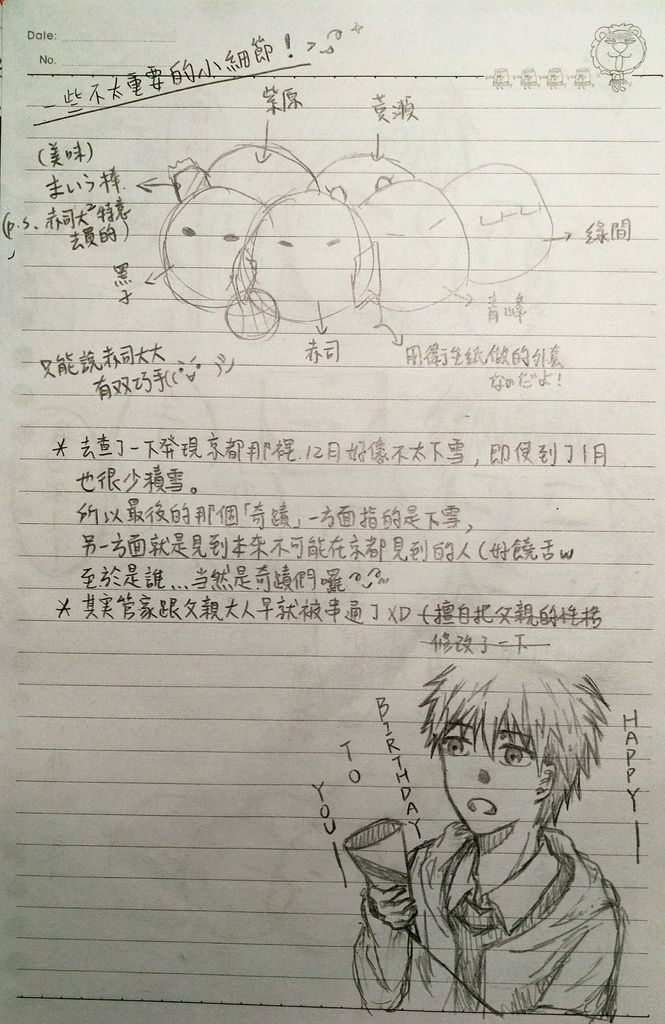 Date:
No.
一些不太重要的小細節！
紫原
黃瀨
(美味)
まいう棒
(p.s. 赤司大大特意
去買的)
黑子
綠間
青峰
赤司
用衛生紙做的外套
なのだよ！
只能說赤司大大
有双巧手
* 去查了一下發現京都那裡12月好像不太下雪，即使到了1月
也很少積雪。
所以最後的那個「奇蹟」一方面指的是下雪，
另一方面就是見到本來不可能在京都見到的人(好饒舌w
至於是誰...当然是奇蹟們囉
* 其實管家跟父親大人早就被串通了XD (擅自把父親的性格
修改了一下
HAPPY
BIRTHDAY
TO
YOU